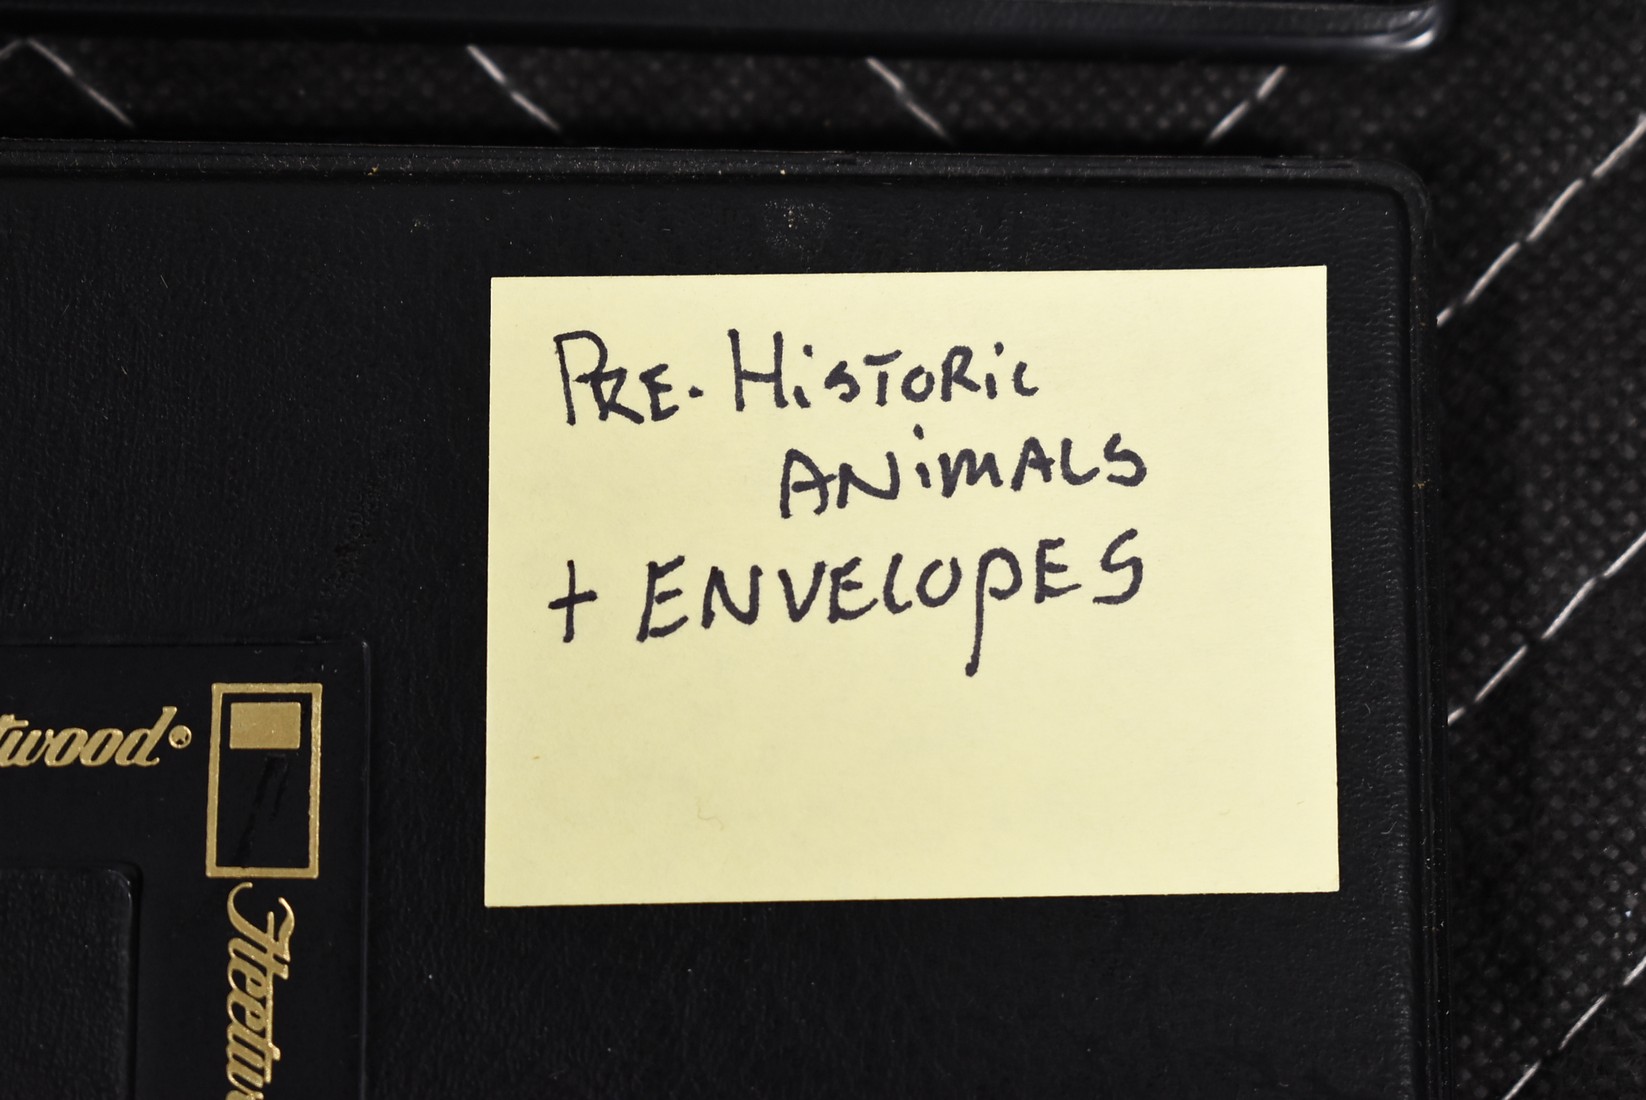 PRE-HISTORIC
ANIMALS
+ ENVELOPES
twood®
Fleetw